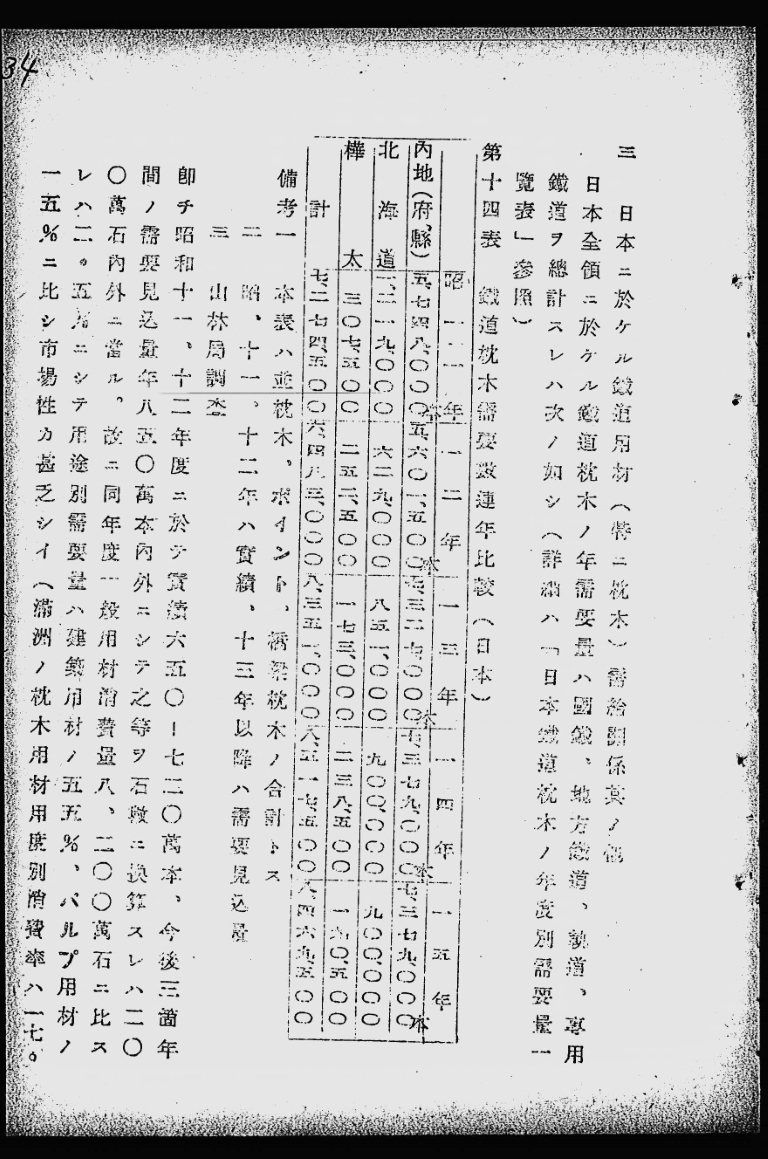 34
三　日本ニ於ケル鐵道用材（特ニ枕木）需給關係其ノ他
日本全領ニ於ケル鐵道枕木ノ年需要量ハ國鐵、地方鐵道、軌道、專用
鐵道ヲ總計スレハ次ノ如シ（詳細ハ「日本鐵道枕木ノ年度別需要量一
覽表」參照）
第十四表　鐵道枕木需要數連年比較（日本）
昭一一年　一二年　一三年　一四年　一五年
內地(府、縣)　五、七四八、〇〇〇本　五、六〇一、五〇〇本　七、三二七、〇〇〇本　七、三七九、〇〇〇本　七、三七九、〇〇〇本
北海道　一、二一九、〇〇〇　六二九、〇〇〇　八五一、〇〇〇　九〇〇、〇〇〇　九〇〇、〇〇〇
樺太　三〇七、五〇〇　二五二、五〇〇　一七三、〇〇〇　二三八、五〇〇　一九〇、五〇〇
計　七、二七四、五〇〇　六、四八三、〇〇〇　八、三五一、〇〇〇　八、五一七、五〇〇　八、四六九、五〇〇
備考一　本表ハ並枕木、ポイント、橋梁枕木ノ合計トス
二　昭、十一、十二年ハ實績、十三年以降ハ需要見込量
三　山林局調査
卽チ昭和十一、十二年度ニ於テ實績六五〇ー七二〇萬本、今後三箇年
間ノ需要見込量年八五〇萬本內外ニシテ之等ヲ石數ニ換算スレハ二〇
〇萬石內外ニ當ル。故ニ同年度一般用材消費量八、二〇〇萬石ニ比ス
レハ二。五％ニシテ用途別需要量ハ建築用材ノ五五％、パルプ用材ノ
一五％ニ比シ市場性カ甚乏シイ（滿洲ノ枕木用材用度別消費率ハ一七。